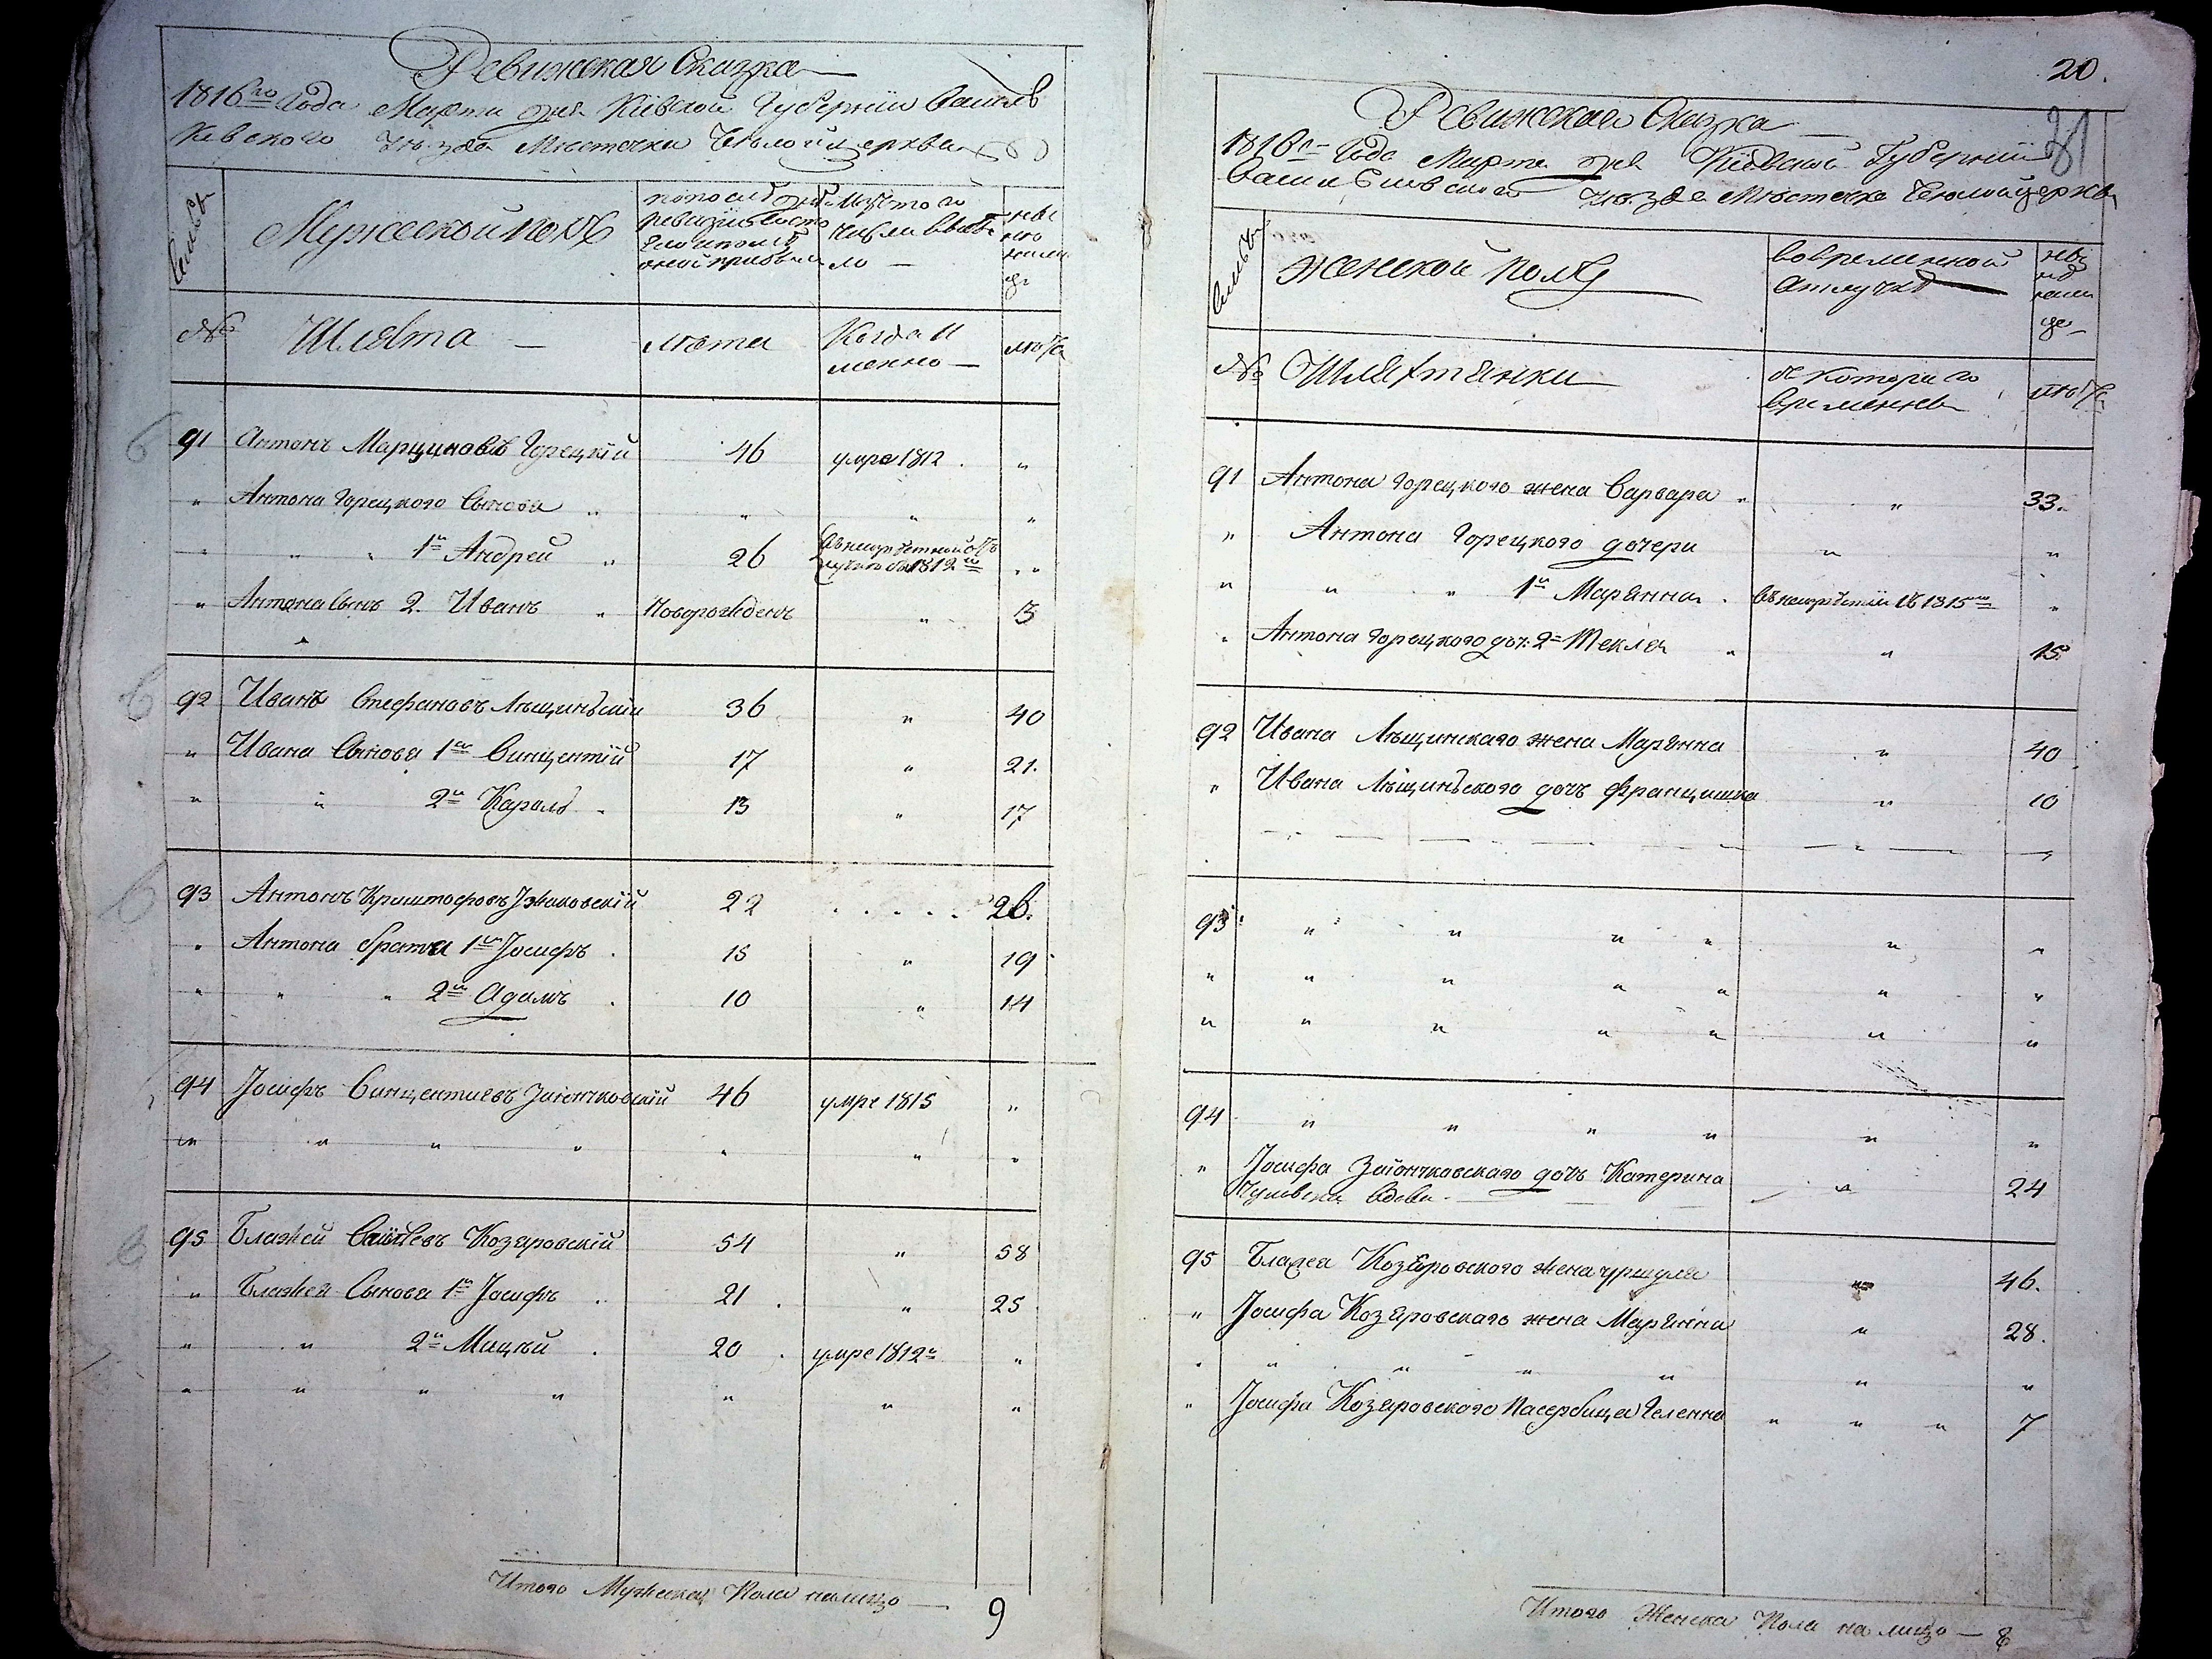 Ревижская Сказка
1816го Года Марта дня Кіевской Губерніи Василь
Кавского Уѣзда Мѣстечка Бѣлойцеркви
Мужеской полъ
по последней
ревизіи состо
яло и после
оной прибыло
Изъ того
числа выбы
ло —
ны
нѣ
нали
це
№ Шляхта — лѣта Когда и
менно — лѣта
91 Антонъ Марциновъ Горецкій 46 умре 1812 . "
" Антона Горецкого Сынова " " " "
" " " 1й Андрей " 26
" Антона Сынъ 2. Иванъ " Новорожденъ " 13
92 Иванъ Стефановъ Лѣщиньскій 36 " 40
" Ивана Сынова 1й Винцентій 17 " 21.
" " 2й Кароль . 13 " 17
93 Антонъ Криштофовъ Ізжаковскій 22 . . . . . 26.
" Антона братья 1й Іосифъ . 15 " 19
" " " 2й Адамъ . 10 " 14
94 Іосифъ Винцентиевъ Заіончковскій 46 умре 1815 "
" " " " " " "
95 Блажей Козаровскій 54 " 58
" Блажея Сынова 1й Іосифъ . 21 . " 25
" " 2й Мацѣй . 20 . умре 1812г "
" " " " " " "
Итого Мужеска Пола налицо — 9
20.
31
Ревижская Сказка
1816г Года Марта дня Кіевской Губерніи
Василькивского Уѣзда Мѣстечка Бѣлойцеркви
Женской полъ
вовременной
отлучкѣ
ны
нѣ
нали
це
№ Шляхтянки
съ которого
времени
лѣта
91 Антона Горецкого жена Варвара " " 33.
" Антона Горецкого дочери " "
" " " 1я Марянна .
" Антона Горецкого доч: 2я Текля " " 15.
92 Ивана Лѣщинскаго жена Марянна " 40
" Ивана Лѣщиньского дочъ Францишка " 10
93 " " " " " "
" " " " " " "
" " " " " " "
94 " " " " " "
" Іосифа Заіончковскаго дочъ Катерина " 24
вдова
95 Блажея Козаровского жена Уршуля " 46.
" Іосифа Козаровскаго жена Марянна " 28.
" " " " " " "
" Іосифа Козаровского Пасербица Гелена " " " 7
Итого Женска Пола налицо — 8